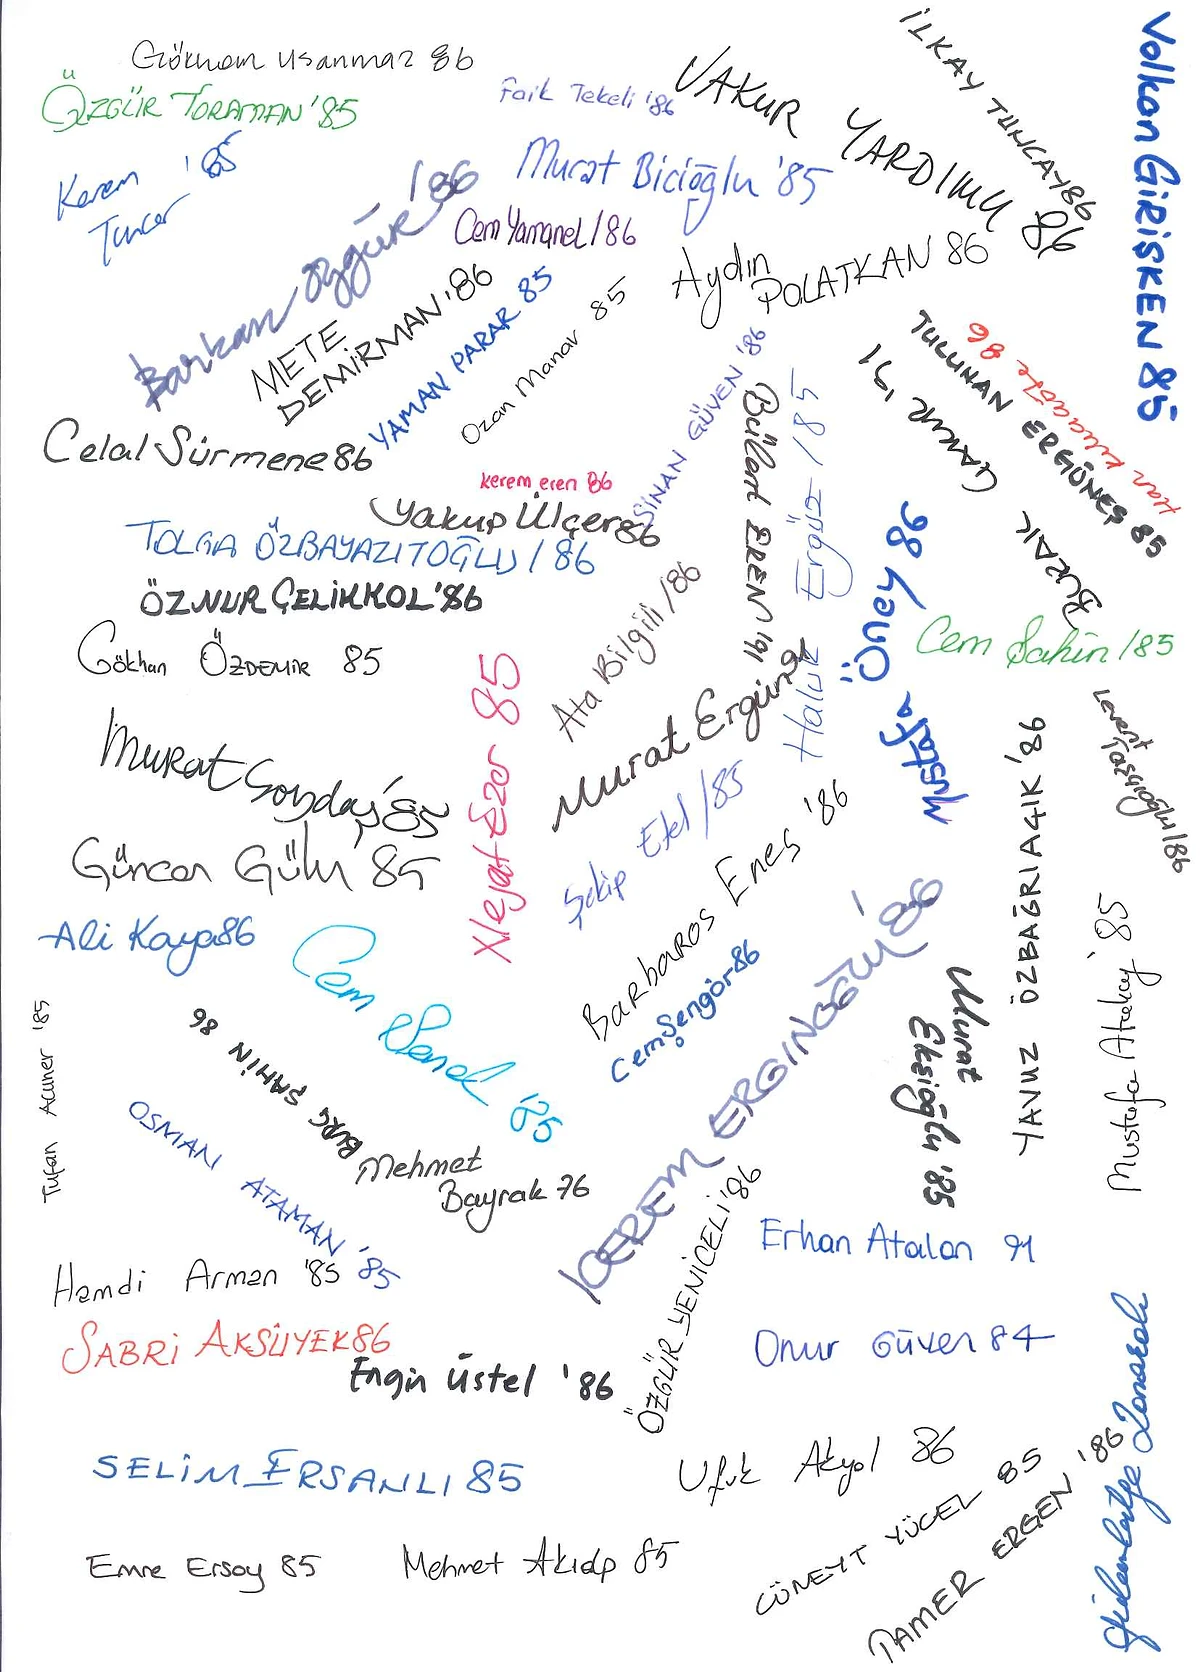 Gökhan Usanmaz 86
ÖZGÜR TORAMAN '85
Faik Tekeli '86
VAKUR YARDIMU 86
İLKAY TUNCAY 86
Volkan GİRİŞKEN 85
Kerem '85
Tuncer
Murat Bicioğlu '85
Barkan Özgür '86
Cem Yamanel / 86
Aydın
POLATKAN 86
METE
DEMİRMAN '86
YAMAN PARAR 85
Ozan Manav 85
SİNAN GÜVEN '86
Bülent EREN '91
Haluk Ergüz / 85
BURAK ÇAKUR '91
TULUHAN ERGÜNEŞ 85
Han 86
Celal Sürmene 86
kerem eren 86
Yakup Ülçer 86
TOLGA ÖZBAYAZITOĞLU / 86
ÖZNUR ÇELİKKOL '86
Gökhan ÖZDEMİR 85
Ata Bilgili / 86
Mustafa Ünay 86
Cem Şahin / 85
Levent
Taşçıoğlu / 86
Murat Soydaş '85
Nejat Ezer 85
Murat Ergüner
Şekip Etel / 85
Barbaros Eneş '86
YAVUZ ÖZBAĞRIAÇIK '86
Güncan Gülu '85
Ali Kaya 86
Cem Şenol '85
Cem Şengör 86
KEREM ERGİNOĞLU '86
Murat
Ekşioğlu '85
Mustafa Atakay '85
Tufan Acuner '85
BURÇ ŞAHİN 86
OSMAN ATAMAN '85
Mehmet
Bayrak 76
ÖZGÜR YENİCELİ '86
Erhan Atalan 91
Hamdi Arman '85
SABRİ AKSÜYEK 86
Engin Üstel '86
Onur Güven 84
SELİM ERSANLI 85
Ufuk Akyol 86
CÜNEYT YÜCEL 85
TAMER ERGEN '86
Emre Ersoy 85
Mehmet Akıalp 85